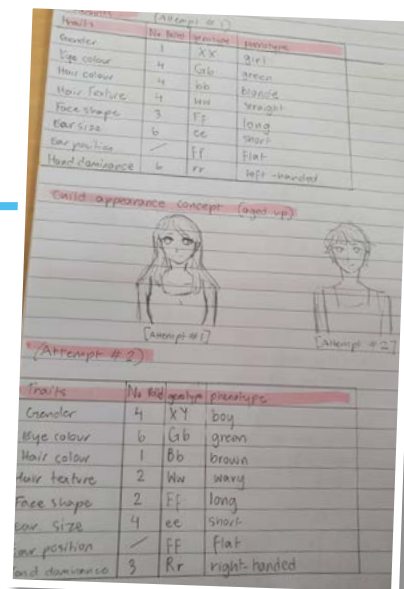 (Attempt #1)
Traits No Rold genotype phenotype
Gender 1 XX girl
Eye colour 4 Gb green
Hair colour 4 bb blonde
Hair texture 4 ww straight
Face shape 3 Ff long
Ear size 6 ee short
Ear position / ff flat
Hand dominance 6 rr left-handed
Child appearance concept (aged up)
[Attempt #1] [Attempt #2]
(Attempt #2)
Traits No Rold genotype phenotype
Gender 4 XY boy
Eye colour 6 Gb green
Hair colour 1 Bb brown
Hair texture 2 Ww wavy
Face shape 2 Ff long
ear size 4 ee short
ear position / FF flat
hand dominance 3 Rr right-handed